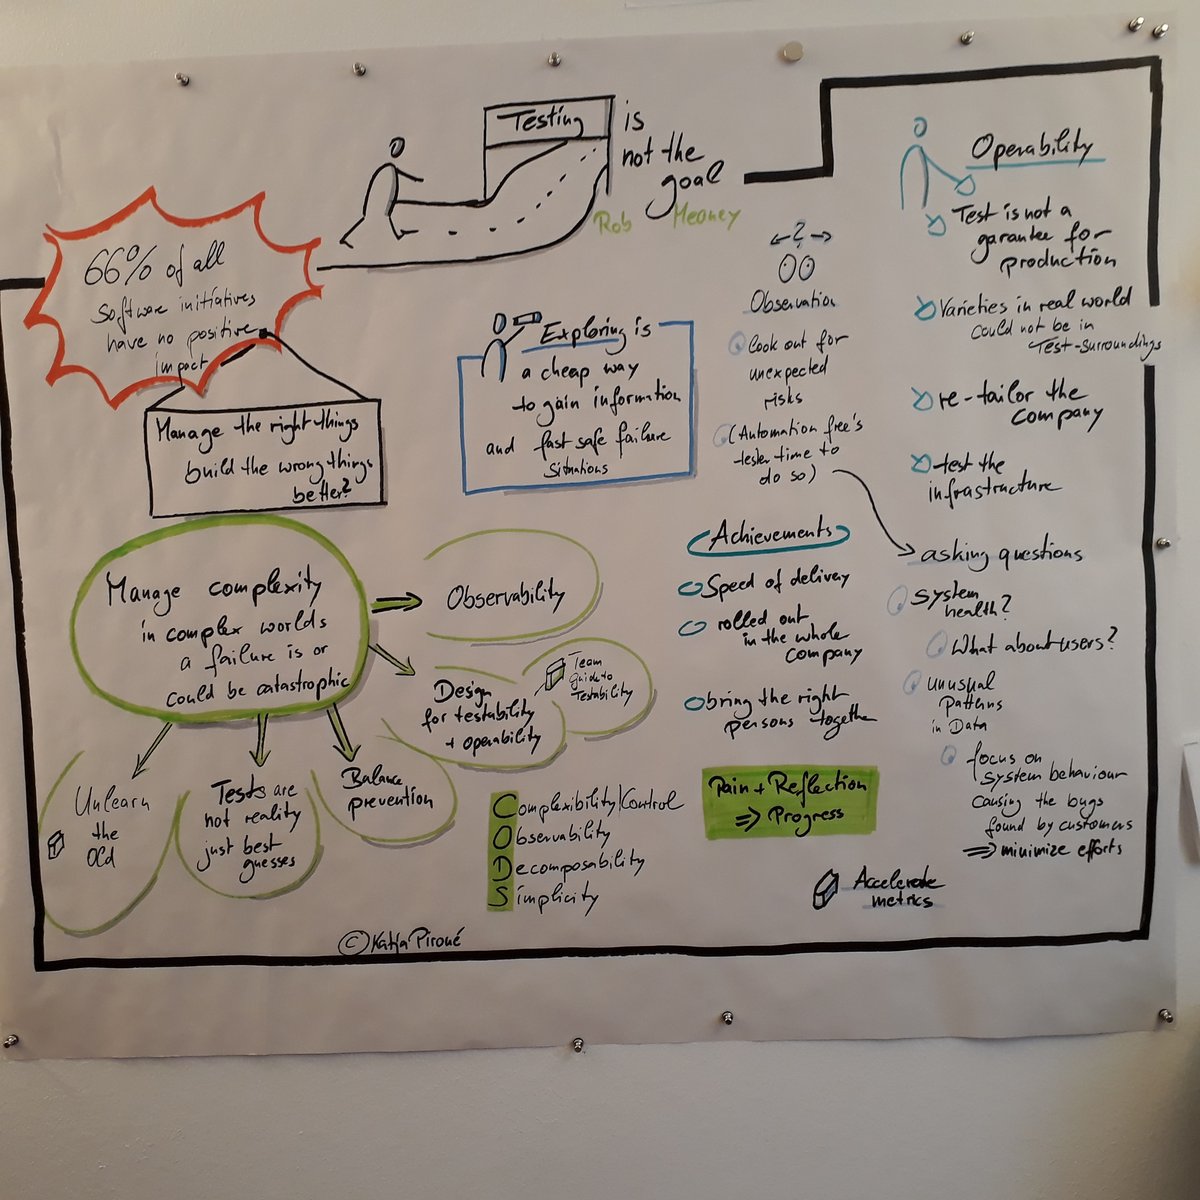 Testing is
not the
goal
Rob Meaney
66% of all
software initiatives
have no positive
impact
Manage the right things
build the wrong things
better?
Exploring is
a cheap way
to gain information
and fast safe failure
situations
← ? →
Observation
Look out for
unexpected
risks
(Automation free's
tester time to
do so)
Operability
Test is not a
garantee for
production
Varieties in real world
could not be in
Test-Surroundings
re-tailor the
company
test the
infrastructure
asking questions
System
health?
What about users?
unusual
Patterns
in Data
focus on
system behaviour
causing the bugs
found by customers
⇒ minimize efforts
Achievements
Speed of delivery
rolled out
in the whole
company
bring the right
persons together
Pain + Reflection
⇒ Progress
Accelerate
metrics
Manage complexity
in complex worlds
a failure is or
could be catastrophic
Observability
Design
for testability
+ operability
Team
Guide to
Testability
Balance
prevention
Tests are
not reality
just best
guesses
Unlearn
the
Old
Complexibility/Control
Observability
Decomposability
Simplicity
© Katja Piroué